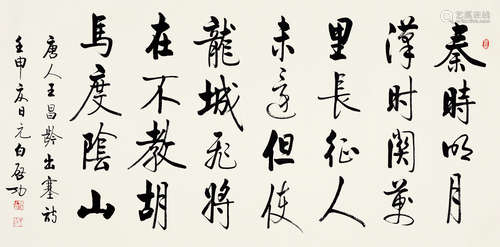 秦時明月
漢时関萬
里長征人
未還但使
龍城飛將
在不教胡
馬度陰山
唐人王昌齡出塞詩
壬申夏日元白啓功